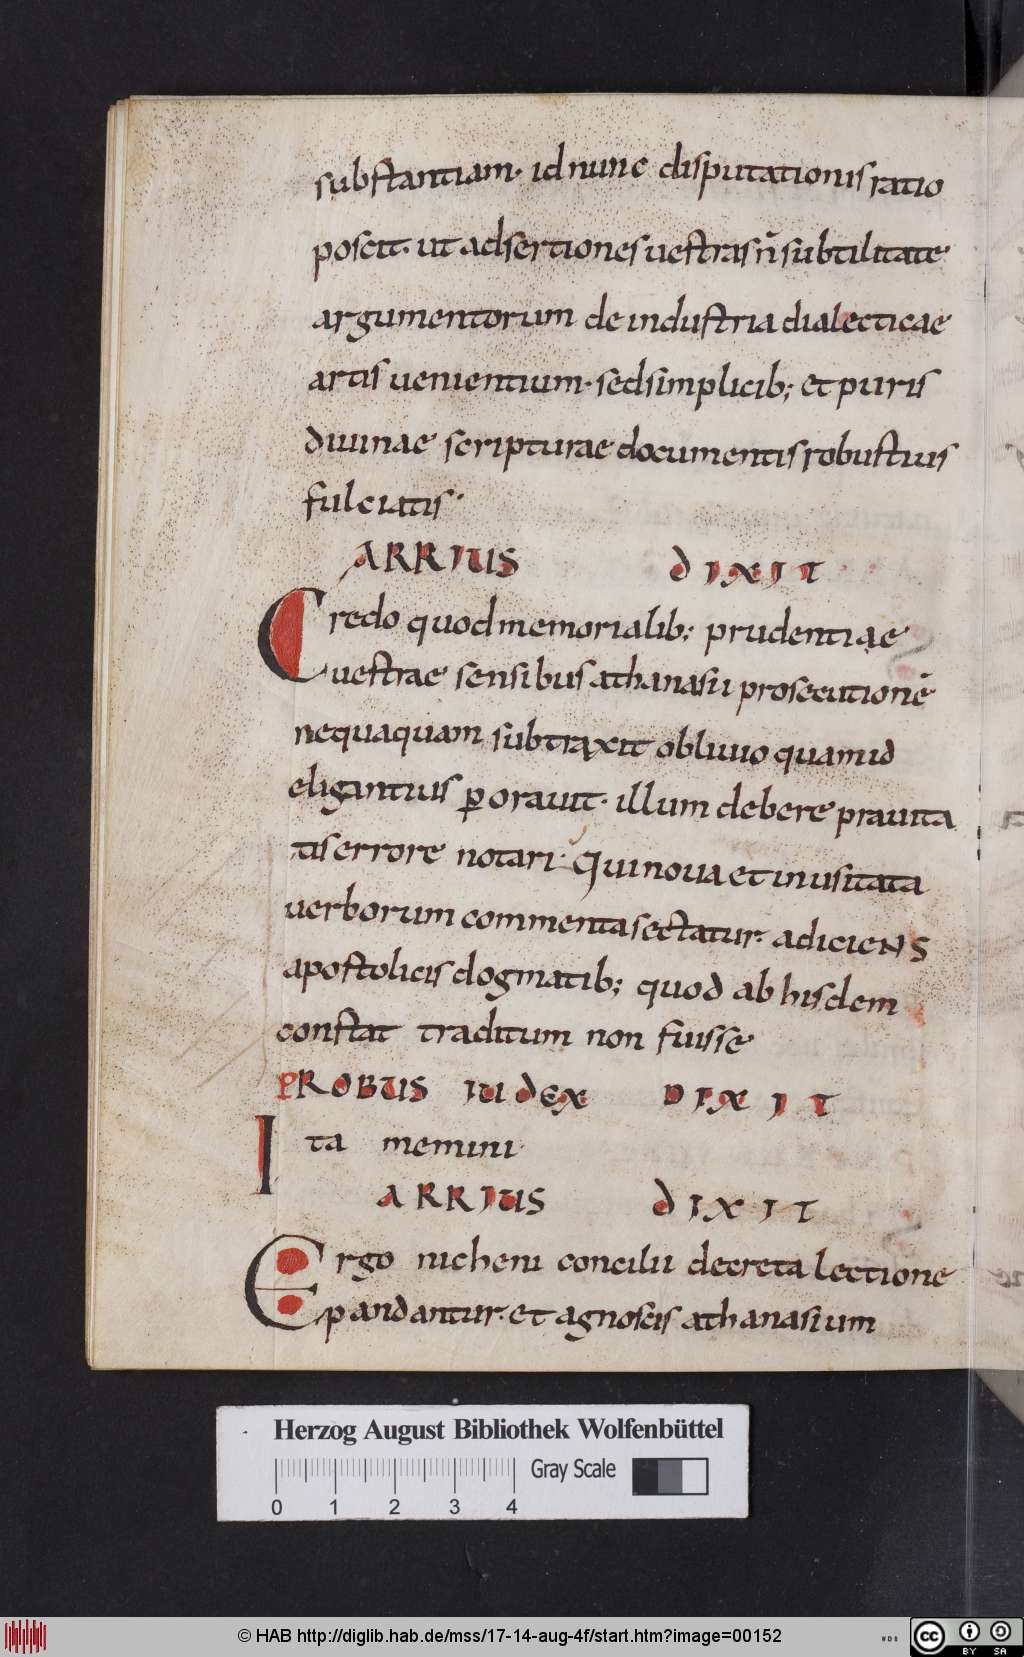 substantiam· id nunc disputationis ratio
poscit· ut adsertiones uestras n̄ subtilitate
argumentorum de industria dialecticae
artis uenientium· sed simplicib; et puris
diuinae scripturae documentis robustius
fulciatis·
ARRIUS DIXIT
Credo quod memorialib; prudentiae
uestrae sensibus athanasii prosecutionē
nequaquam subtraxit obliuio quam id
eligantius ꝑorauit· illum debere prauita
tis errore notari· Qui noua et inusitata
uerborum commenta sectatur· adiciens
apostolicis dogmatib; quod ab hisdem
constat traditum non fuisse
PROBUS IUDEX DIXIT
Ita memini·
ARRIUS DIXIT
Ergo nicheni concilii decreta lectione
pandantur· et agnoscis athanasium
Herzog August Bibliothek Wolfenbüttel
Gray Scale
0 1 2 3 4
© HAB http://diglib.hab.de/mss/17-14-aug-4f/start.htm?image=00152
cc BY SA